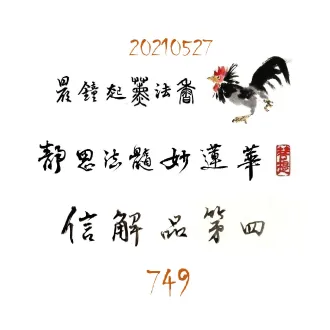 20210527
晨鐘起薰法香
靜思法髓妙蓮華
信解品第四
749